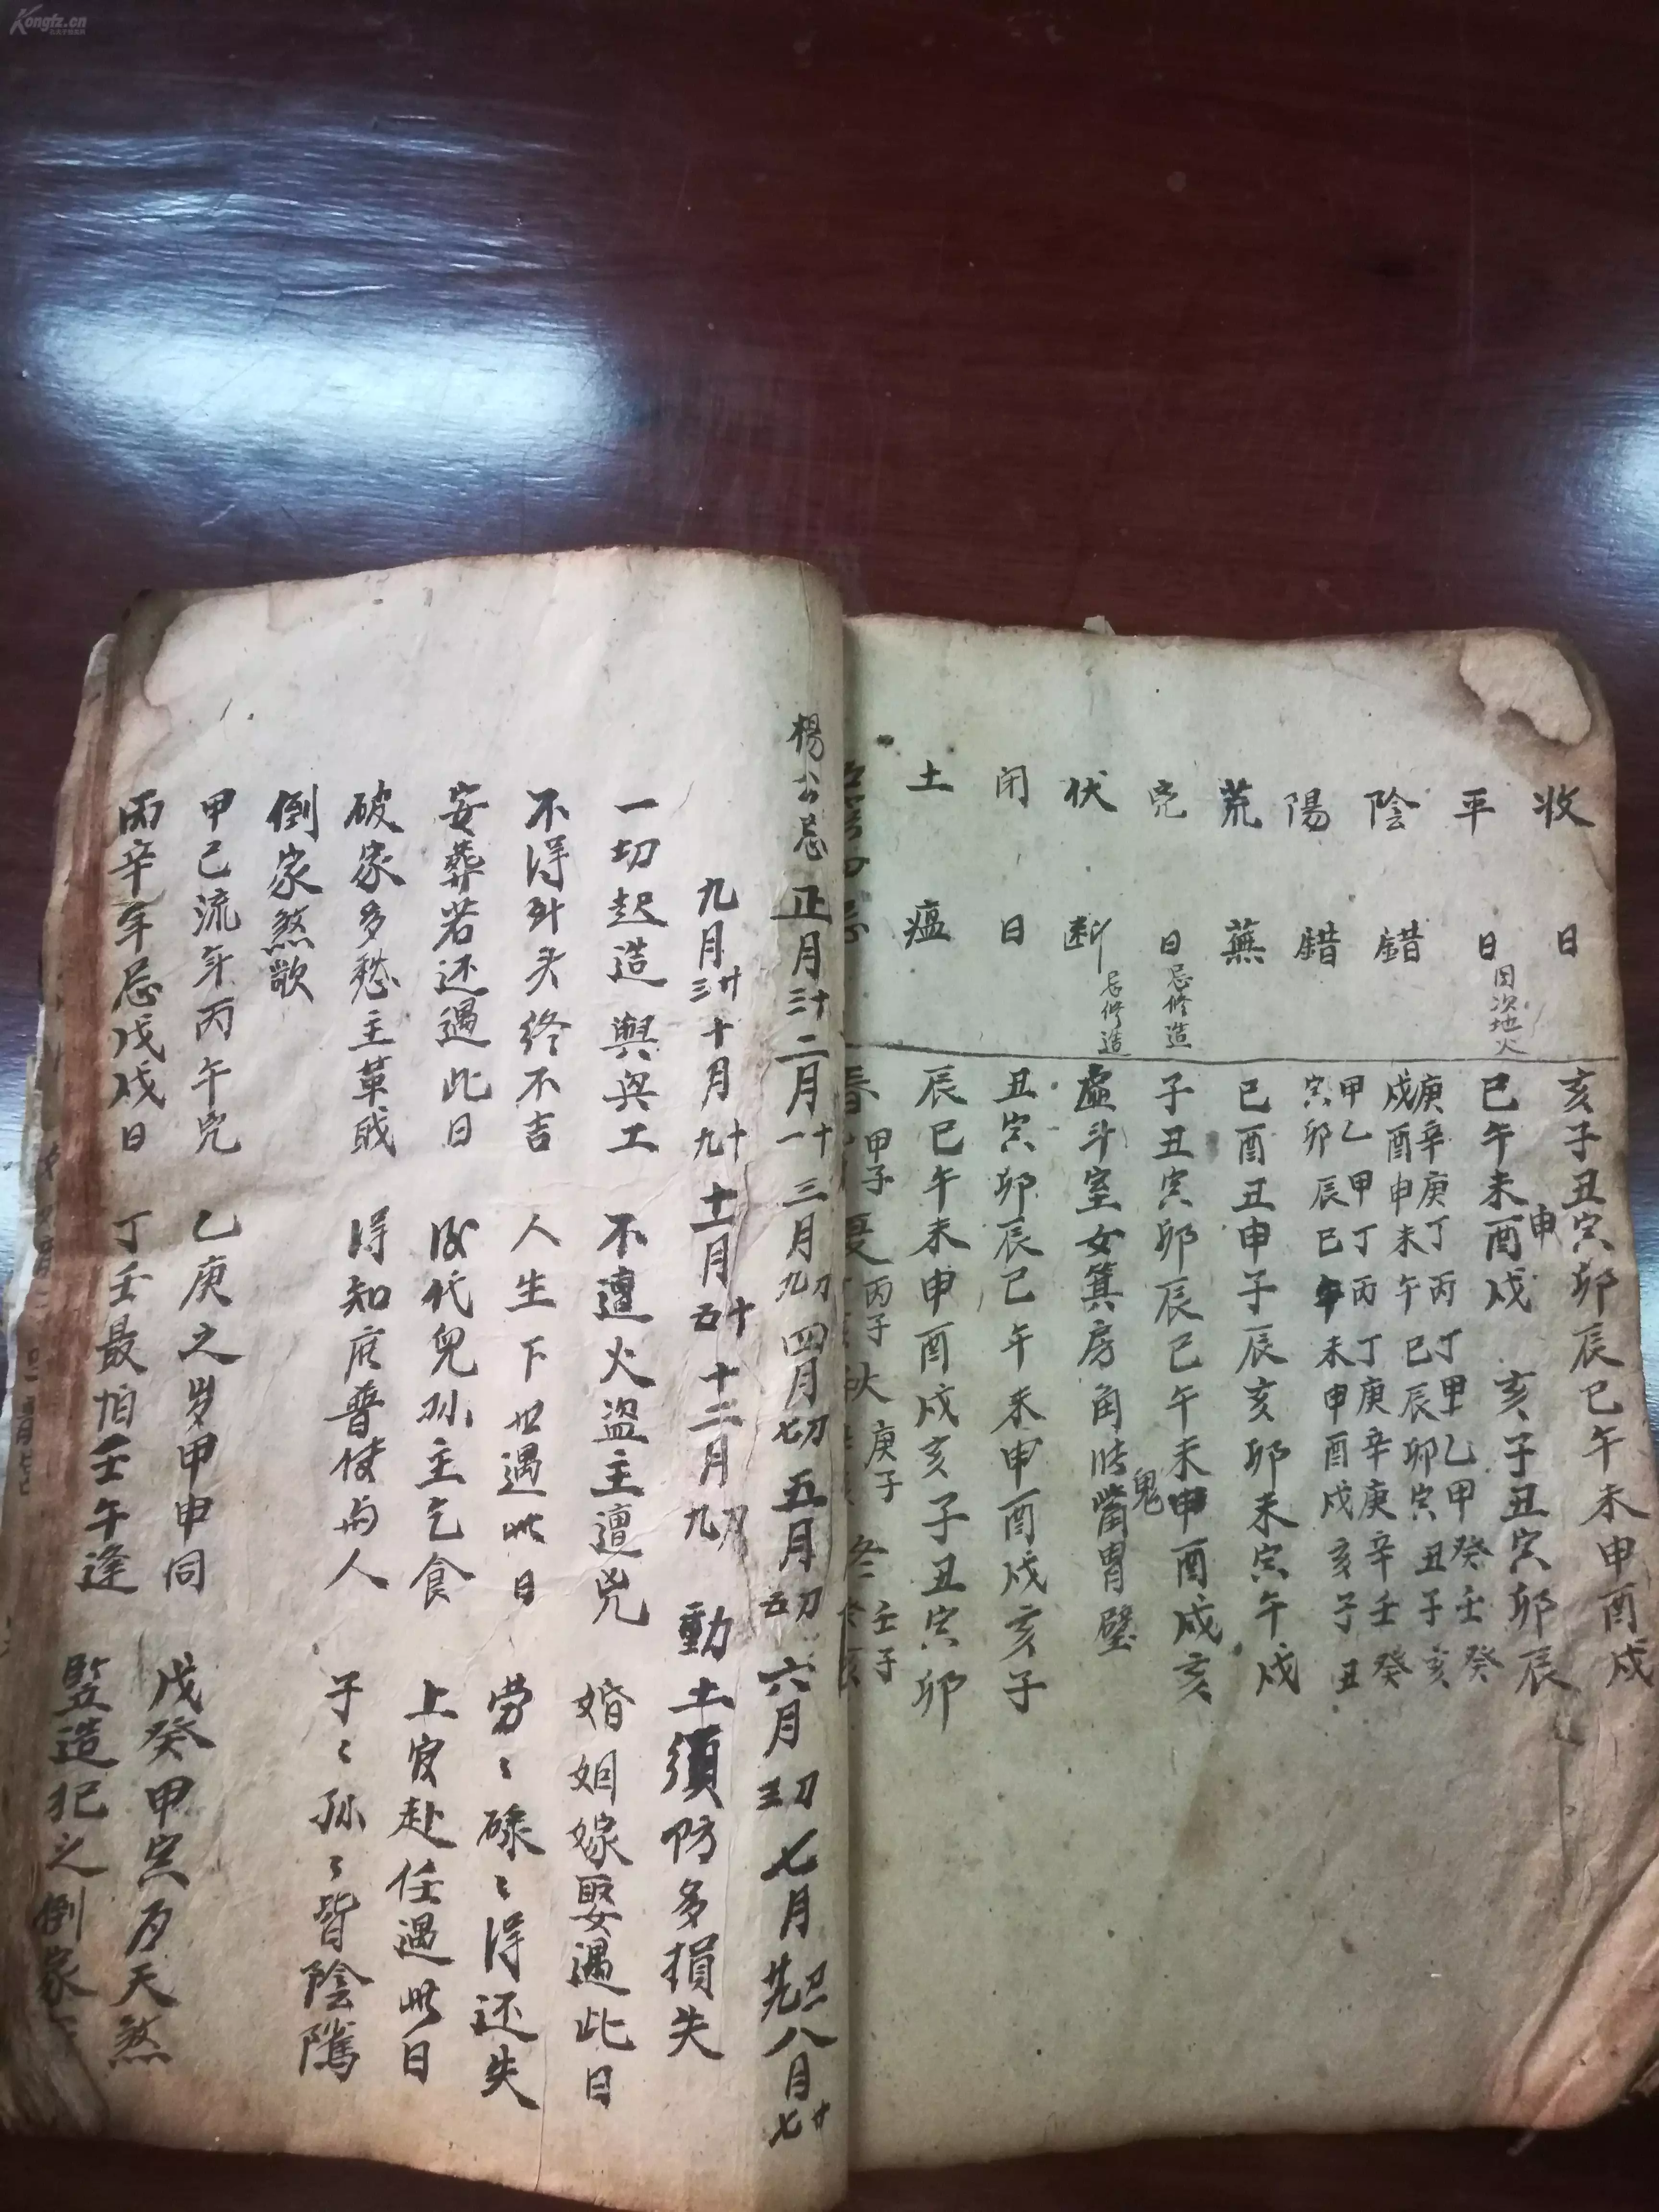 Kongfz.cn
收日 亥子丑寅卯辰巳午未申酉戌
平日 因次地火 巳午未申酉戌 亥子丑寅卯辰
陰錯 庚辛庚丁丙丁甲乙甲癸壬癸
戌酉申未午巳辰卯寅丑子亥
陽錯 甲乙甲丁丙丁庚辛庚辛壬癸
寅卯辰巳午未申酉戌亥子丑
荒蕪 巳酉丑申子辰亥卯未寅午戌
兇日 忌修造 子丑寅卯辰巳午未申酉戌亥
伏断 忌修造 虚斗室女箕房角張鬼觜胃壁
闭日 丑寅卯辰巳午未申酉戌亥子
土瘟 辰巳午未申酉戌亥子丑寅卯
春 甲子 夏 丙子 秋 庚子 冬 壬子
楊公忌 正月十三 二月十一 三月初九 四月初七 五月初五 六月初三 七月初一廿九 八月廿七
九月廿三 十月十九 十一月十五 十二月初九 動土須防多損失
一切起造與與工 不遭火盗主遭兇 婚姻嫁娶遇此日
不得到头终不吉 人生下世遇此日 劳々碌々得还失
安葬若还遇此日 後代兒孙主乞食 上官赴任遇此日
破家多愁主革戝 得知庶普使与人 子々孙々皆陰隲
倒家煞歌
甲己流年丙午兇 乙庚之岁甲申同 戊癸甲寅为天煞
丙辛年忌戊戌日 丁壬最怕壬午逢 竪造犯之倒家